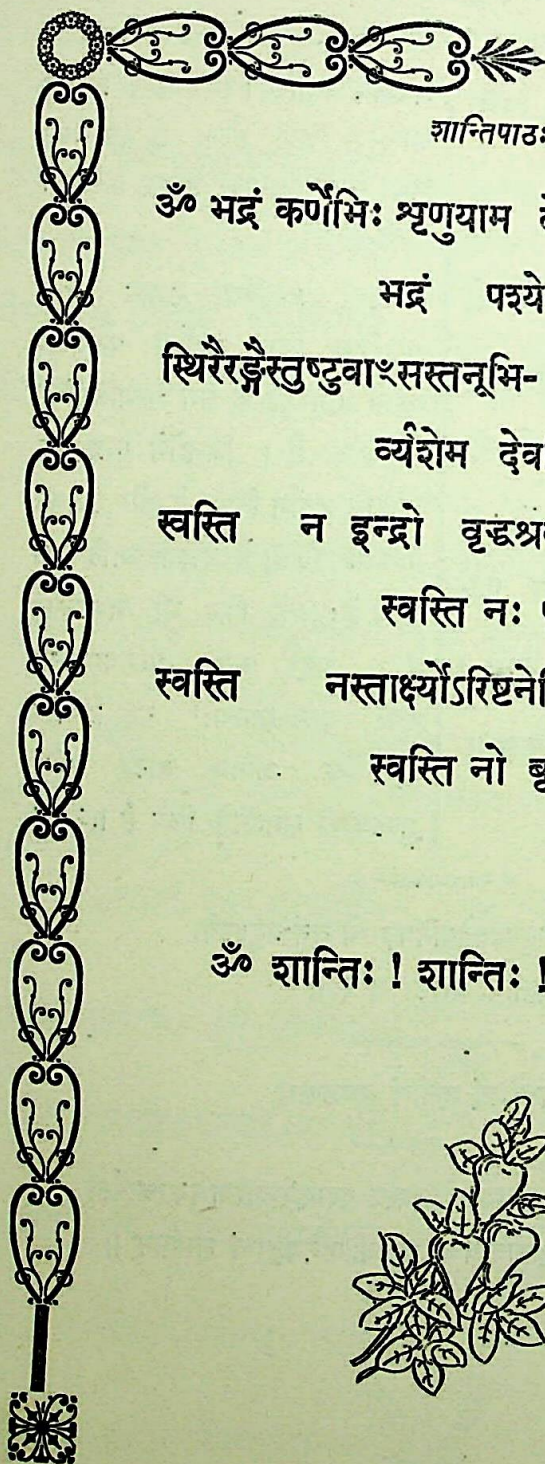 शान्तिपाठः
ॐ भद्रं कर्णेभिः शृणुयाम
भद्रं पश्ये
स्थिरैरङ्गैस्तुष्टुवाꣳसस्तनूभि-
र्व्यशेम देव
स्वस्ति न इन्द्रो वृद्धश्र
स्वस्ति नः
स्वस्ति नस्तार्क्ष्योऽरिष्टने
स्वस्ति नो बृ
ॐ शान्तिः ! शान्तिः !